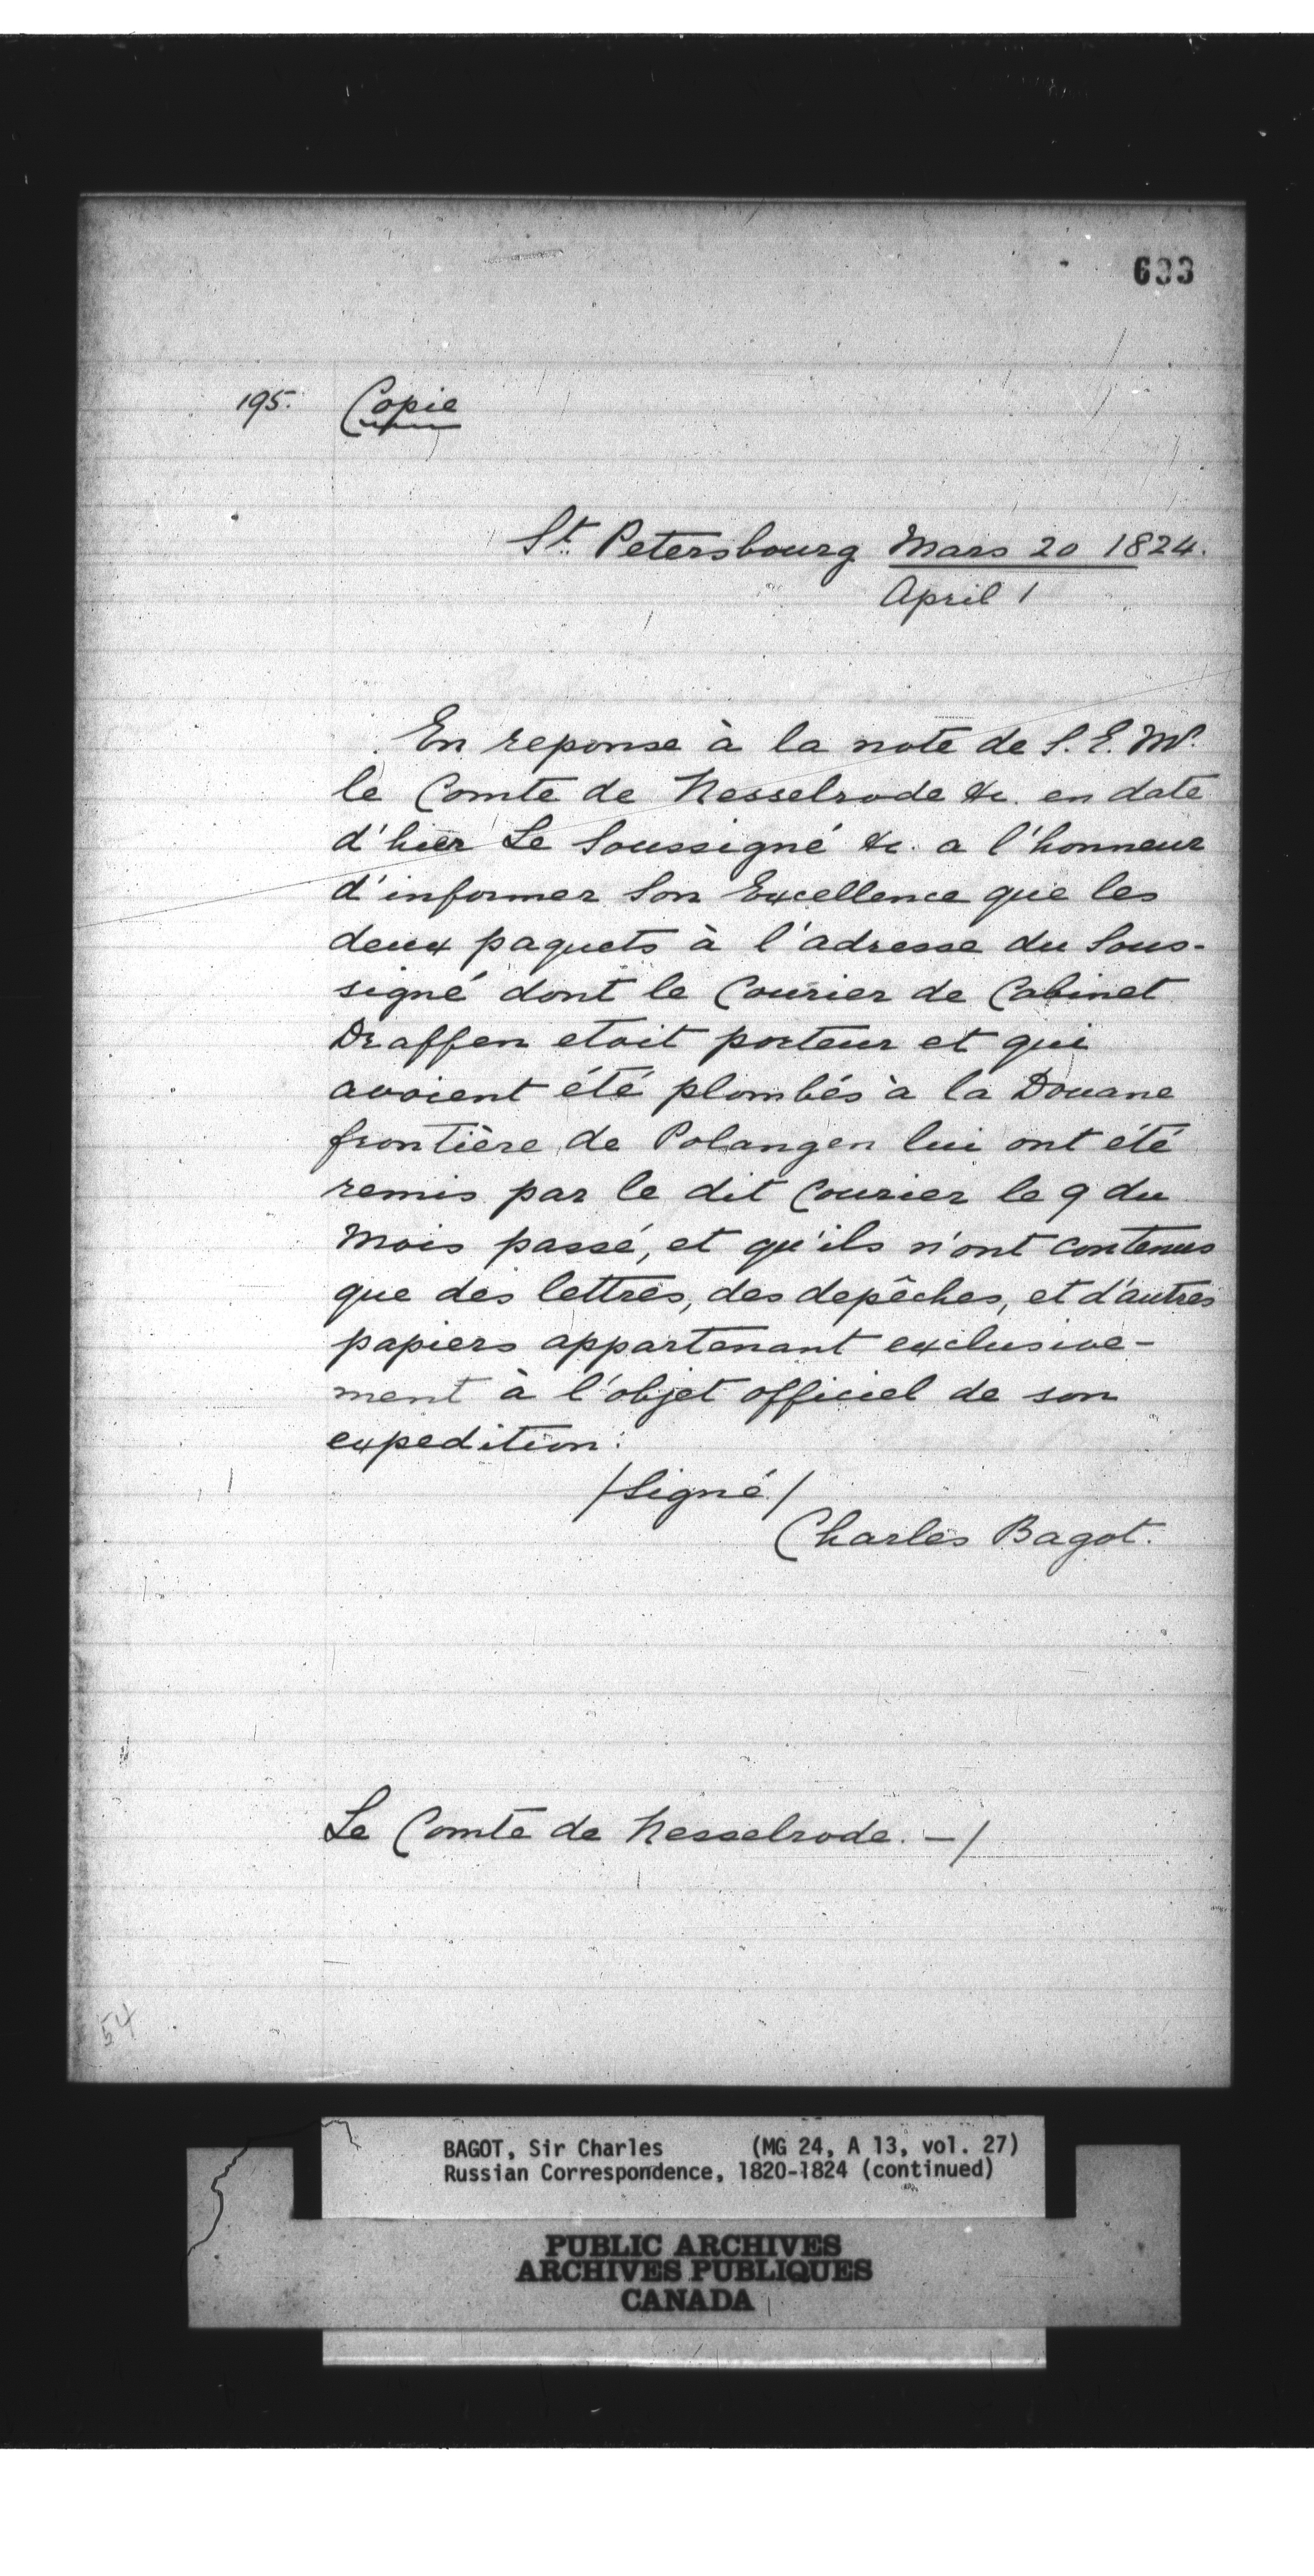 633
195. Copie
St. Petersbourg Mars 20 1824.
April 1
En reponse à la note de S. E. Mr.
le Comte de Nesselrode &c. en date
d'hier Le Soussigné &c. a l'honneur
d'informer Son Excellence que les
deux paquets à l'adresse du Sous-
signé dont le Courier de Cabinet
Draffen etoit porteur et qui
avoient été plombés à la Douane
frontière de Polangen lui ont été
remis par le dit Courier le 9 du
Mois passé, et qu'ils n'ont contenus
que des lettres, des depêches, et d'autres
papiers appartenant exclusive-
ment à l'objet officiel de son
expedition:
/Signé/
Charles Bagot.
Le Comte de Nesselrode. -/
54
BAGOT, Sir Charles (MG 24, A 13, vol. 27)
Russian Correspondence, 1820-1824 (continued)
PUBLIC ARCHIVES
ARCHIVES PUBLIQUES
CANADA